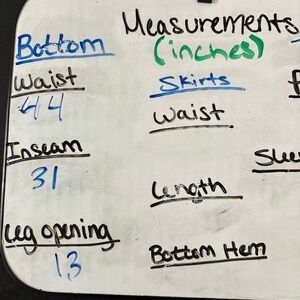 Measurements
(inches)
Bottom
Waist
44
Inseam
31
Leg opening
13
Skirts
Waist
Length
Bottom Hem